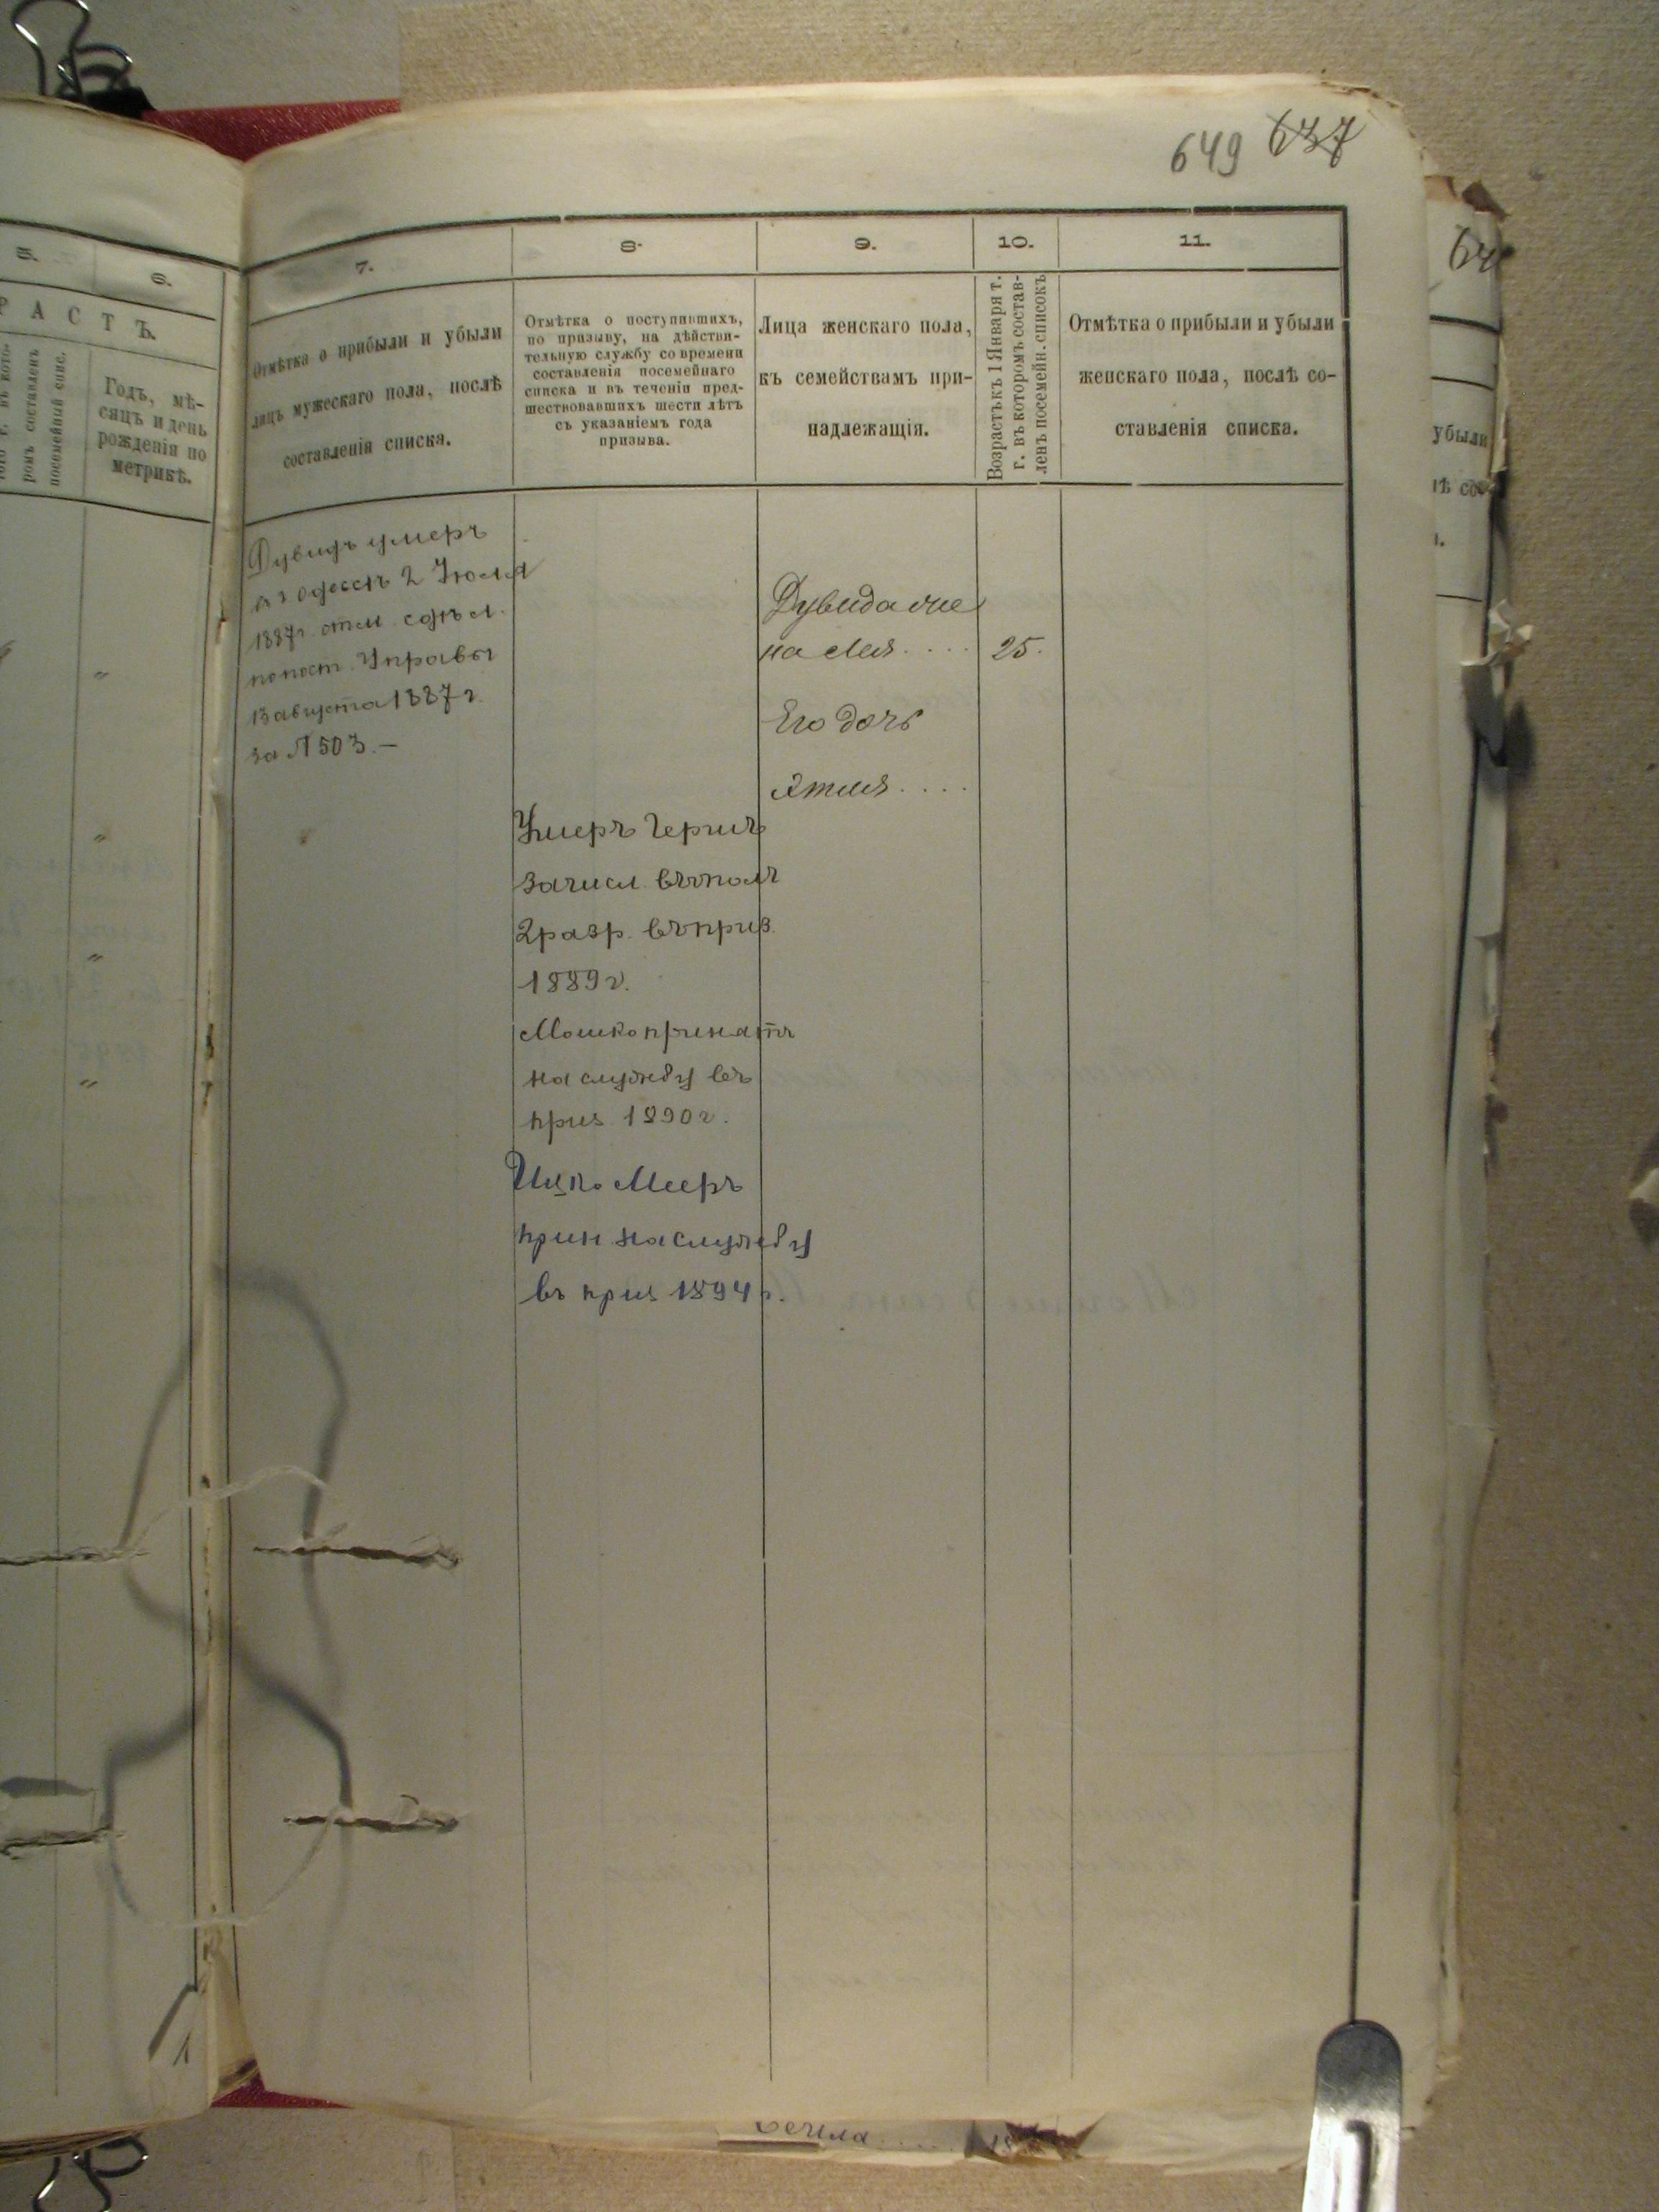 649 637
5.
6.
РАСТЪ.
ромъ составленъ
посемейный спис.
Годъ, мѣ-
сяцъ и день
рожденія по
метрикѣ.
7.
8.
9.
10.
11.
Отмѣтка о прибыли и убыли
лицъ мужескаго пола, послѣ
составленія списка.
Отмѣтка о поступившихъ,
по призыву, на дѣйстви-
тельную службу со времени
составленія посемейнаго
списка и въ теченіи пред-
шествовавшихъ шести лѣтъ
съ указаніемъ года
призыва.
Лица женскаго пола,
къ семействамъ при-
надлежащія.
Возрастъ къ 1 Января т.
г. въ которомъ состав-
ленъ посемейн. списокъ
Отмѣтка о прибыли и убыли
женскаго пола, послѣ со-
ставленія списка.
Дувидъ умеръ
въ одессѣ 2 Іюля
1887г.
попост. Управы
13 августа 1887 г.
за № 503.—
Умеръ Гершъ
зачисл. въ опол
2 разр. въ приз.
1889 г.
Мошко принятъ
на службу въ
приз. 1890 г.
Ицко Мееръ
прин на службу
въ приз 1894 г.
Дувида же
на Лея.... 25.
Его дочь
Этля....
убыли